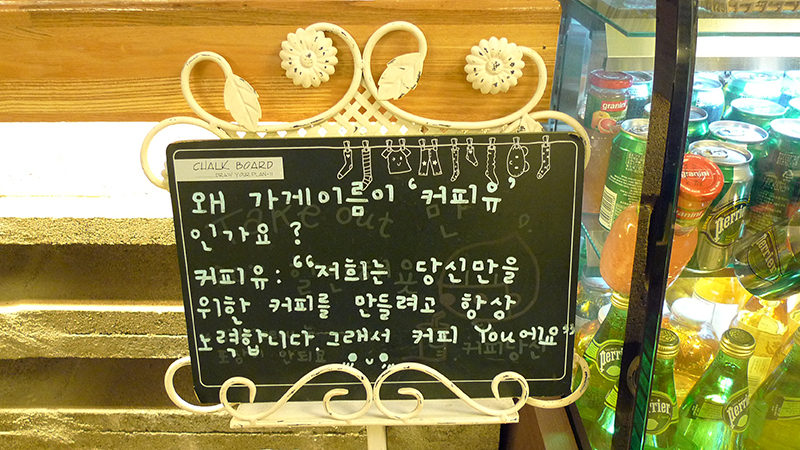 CHALK BOARD
DRAW YOUR PLAN~!!
왜 가게이름이 '커피유'
인가요 ?
커피유: "저희는 당신만을
위한 커피를 만들려고 항상
노력합니다 그래서 커피 You에요"
granini
granini
Perrier
Perrier
Perrier
Perrier
Perrier